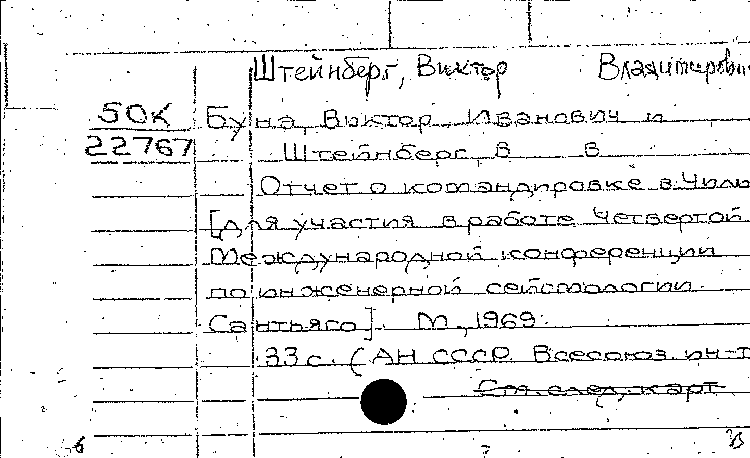 Штейнберг, Виктор Владимирович
50К Буна, Виктор Иванович и
22767 Штейнберг, В В
Отчет о командировке в Чили
[для участия в работе Четвертой
Международной конференции
по инженерной сейсмологии.
Сантьяго]. М., 1969.
33 с. (АН СССР. Всесоюз. ин-т
См. след. карт